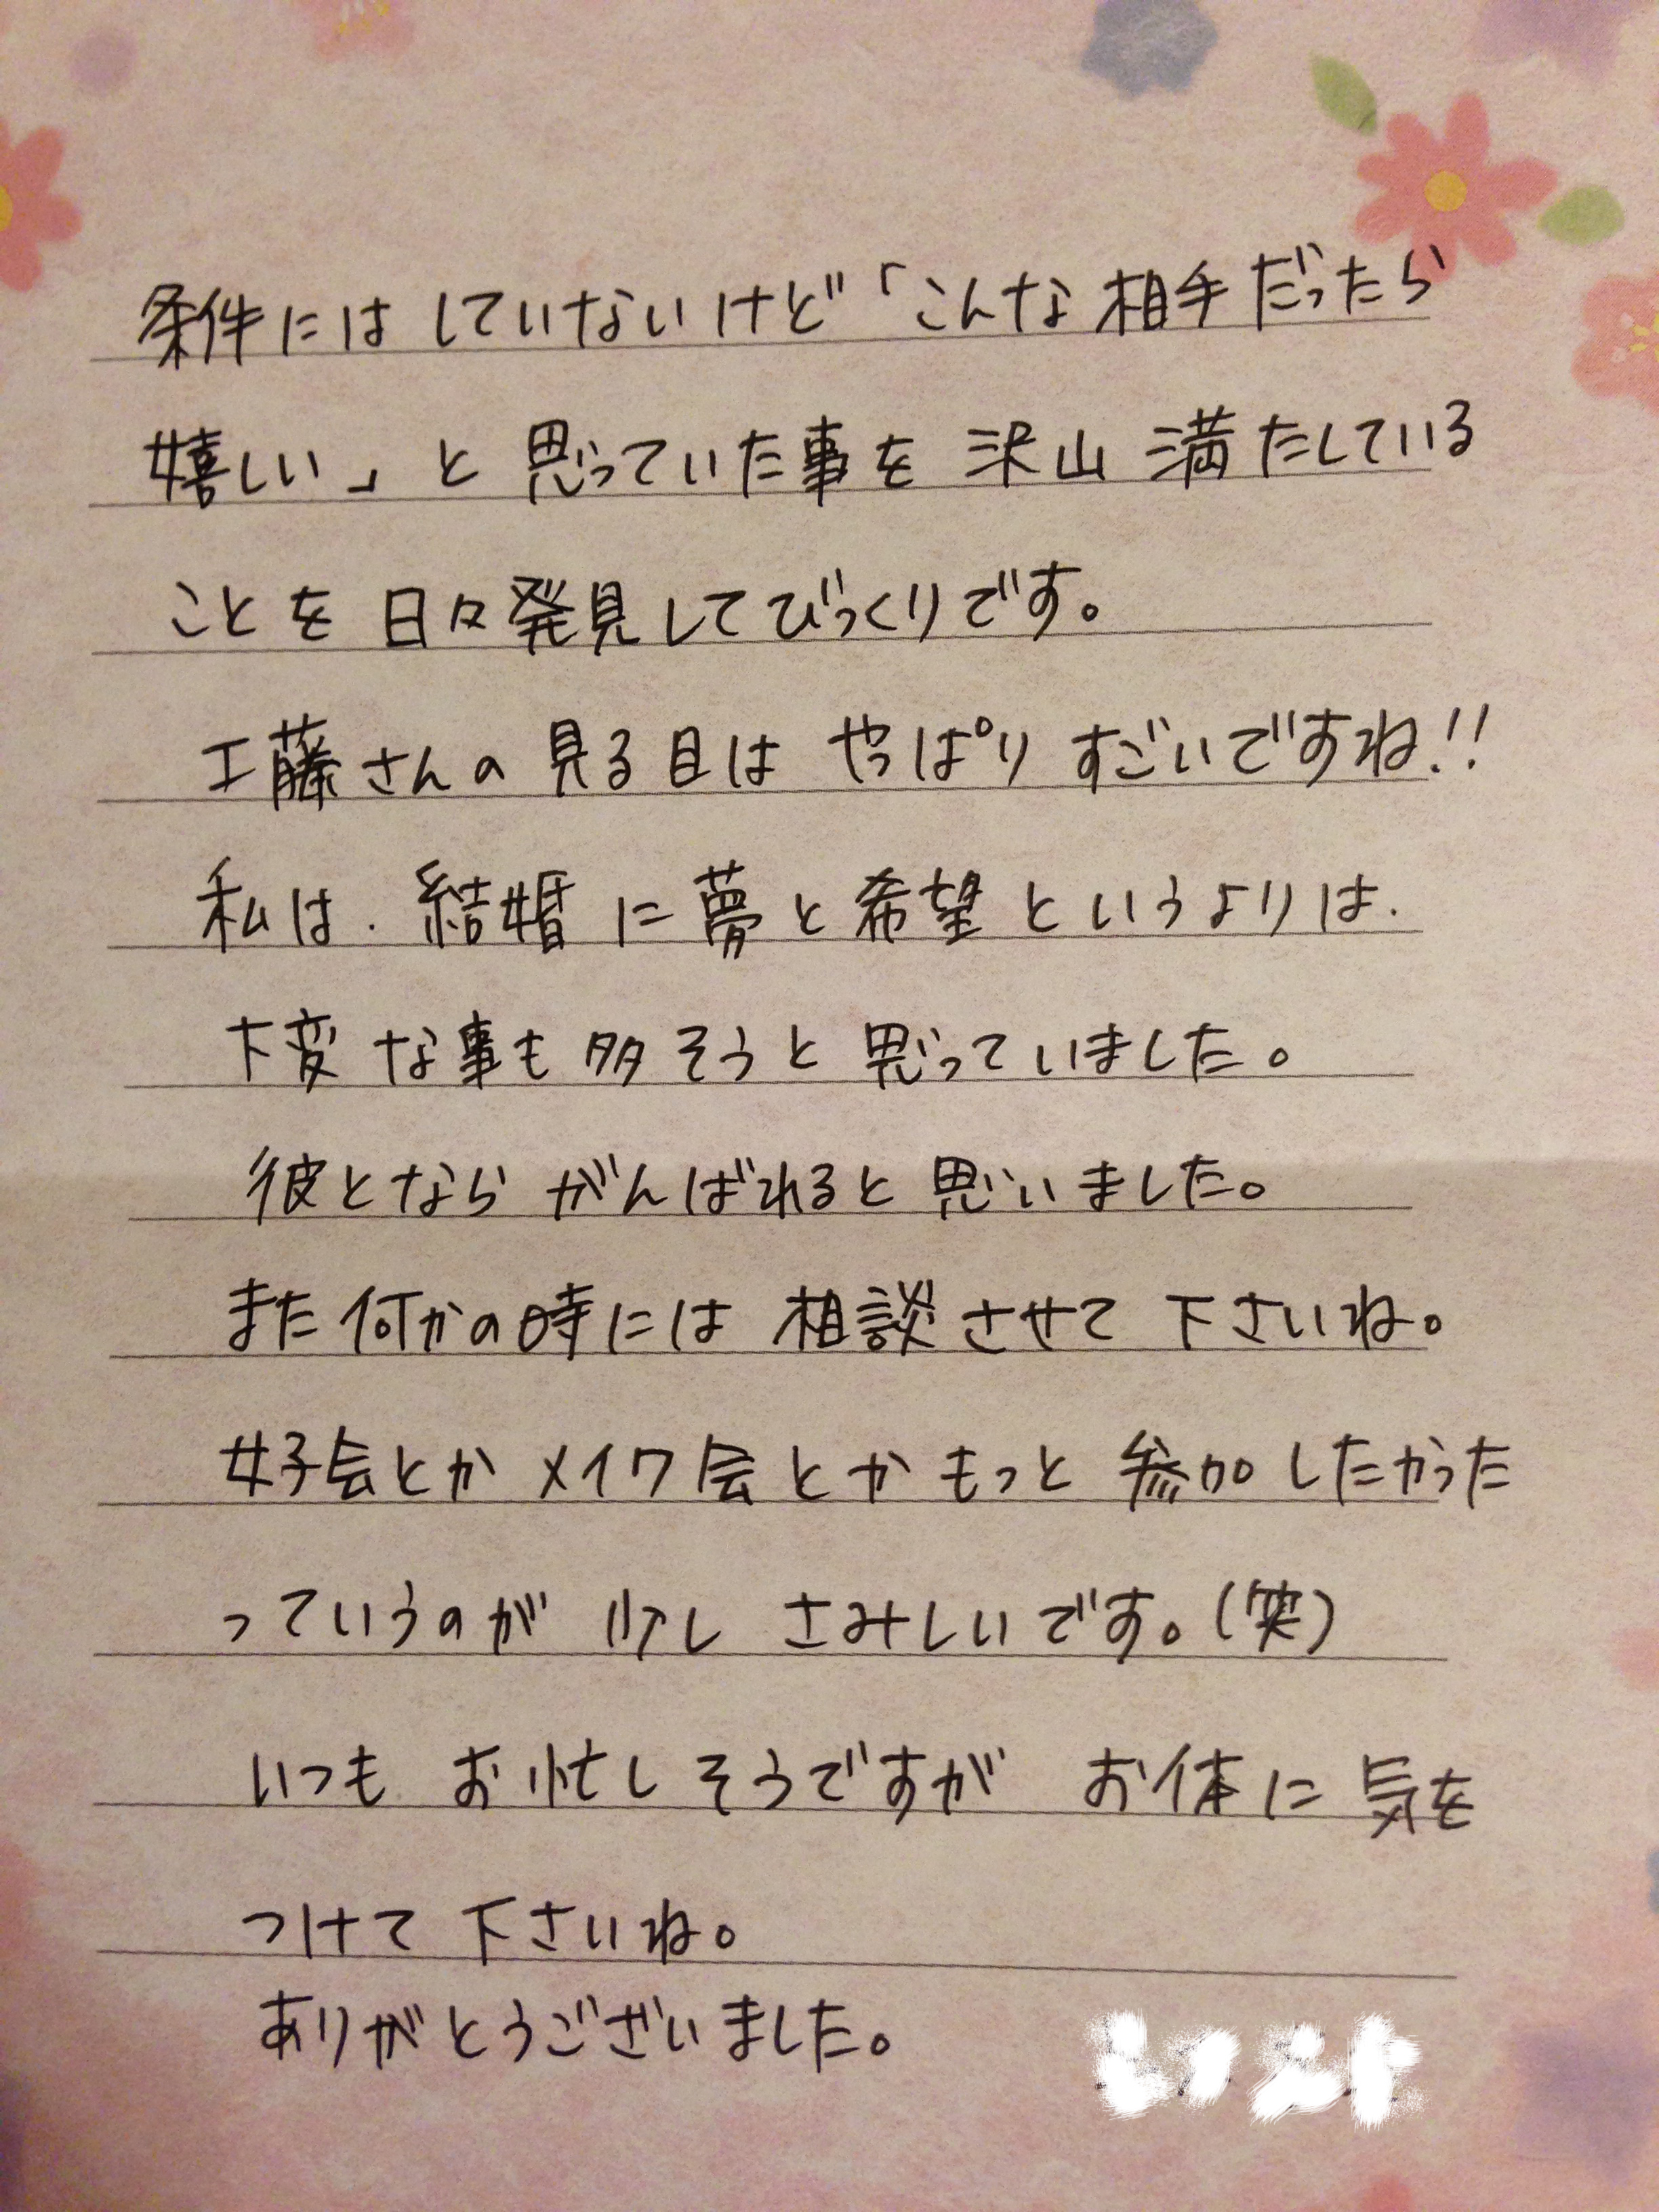 条件にはしていないけど「こんな相手だったら
嬉しい」と思っていた事を沢山満たしている
ことを日々発見してびっくりです。
工藤さんの見る目はやっぱりすごいですね!!
私は、結婚に夢と希望というよりは、
大変な事も多そうと思っていました。
彼とならがんばれると思いました。
また何かの時には相談させて下さいね。
女子会とかメイク会とかもっと参加したかった
っていうのが少しさみしいです。(笑)
いつもお忙しそうですがお体に気を
つけて下さいね。
ありがとうございました。